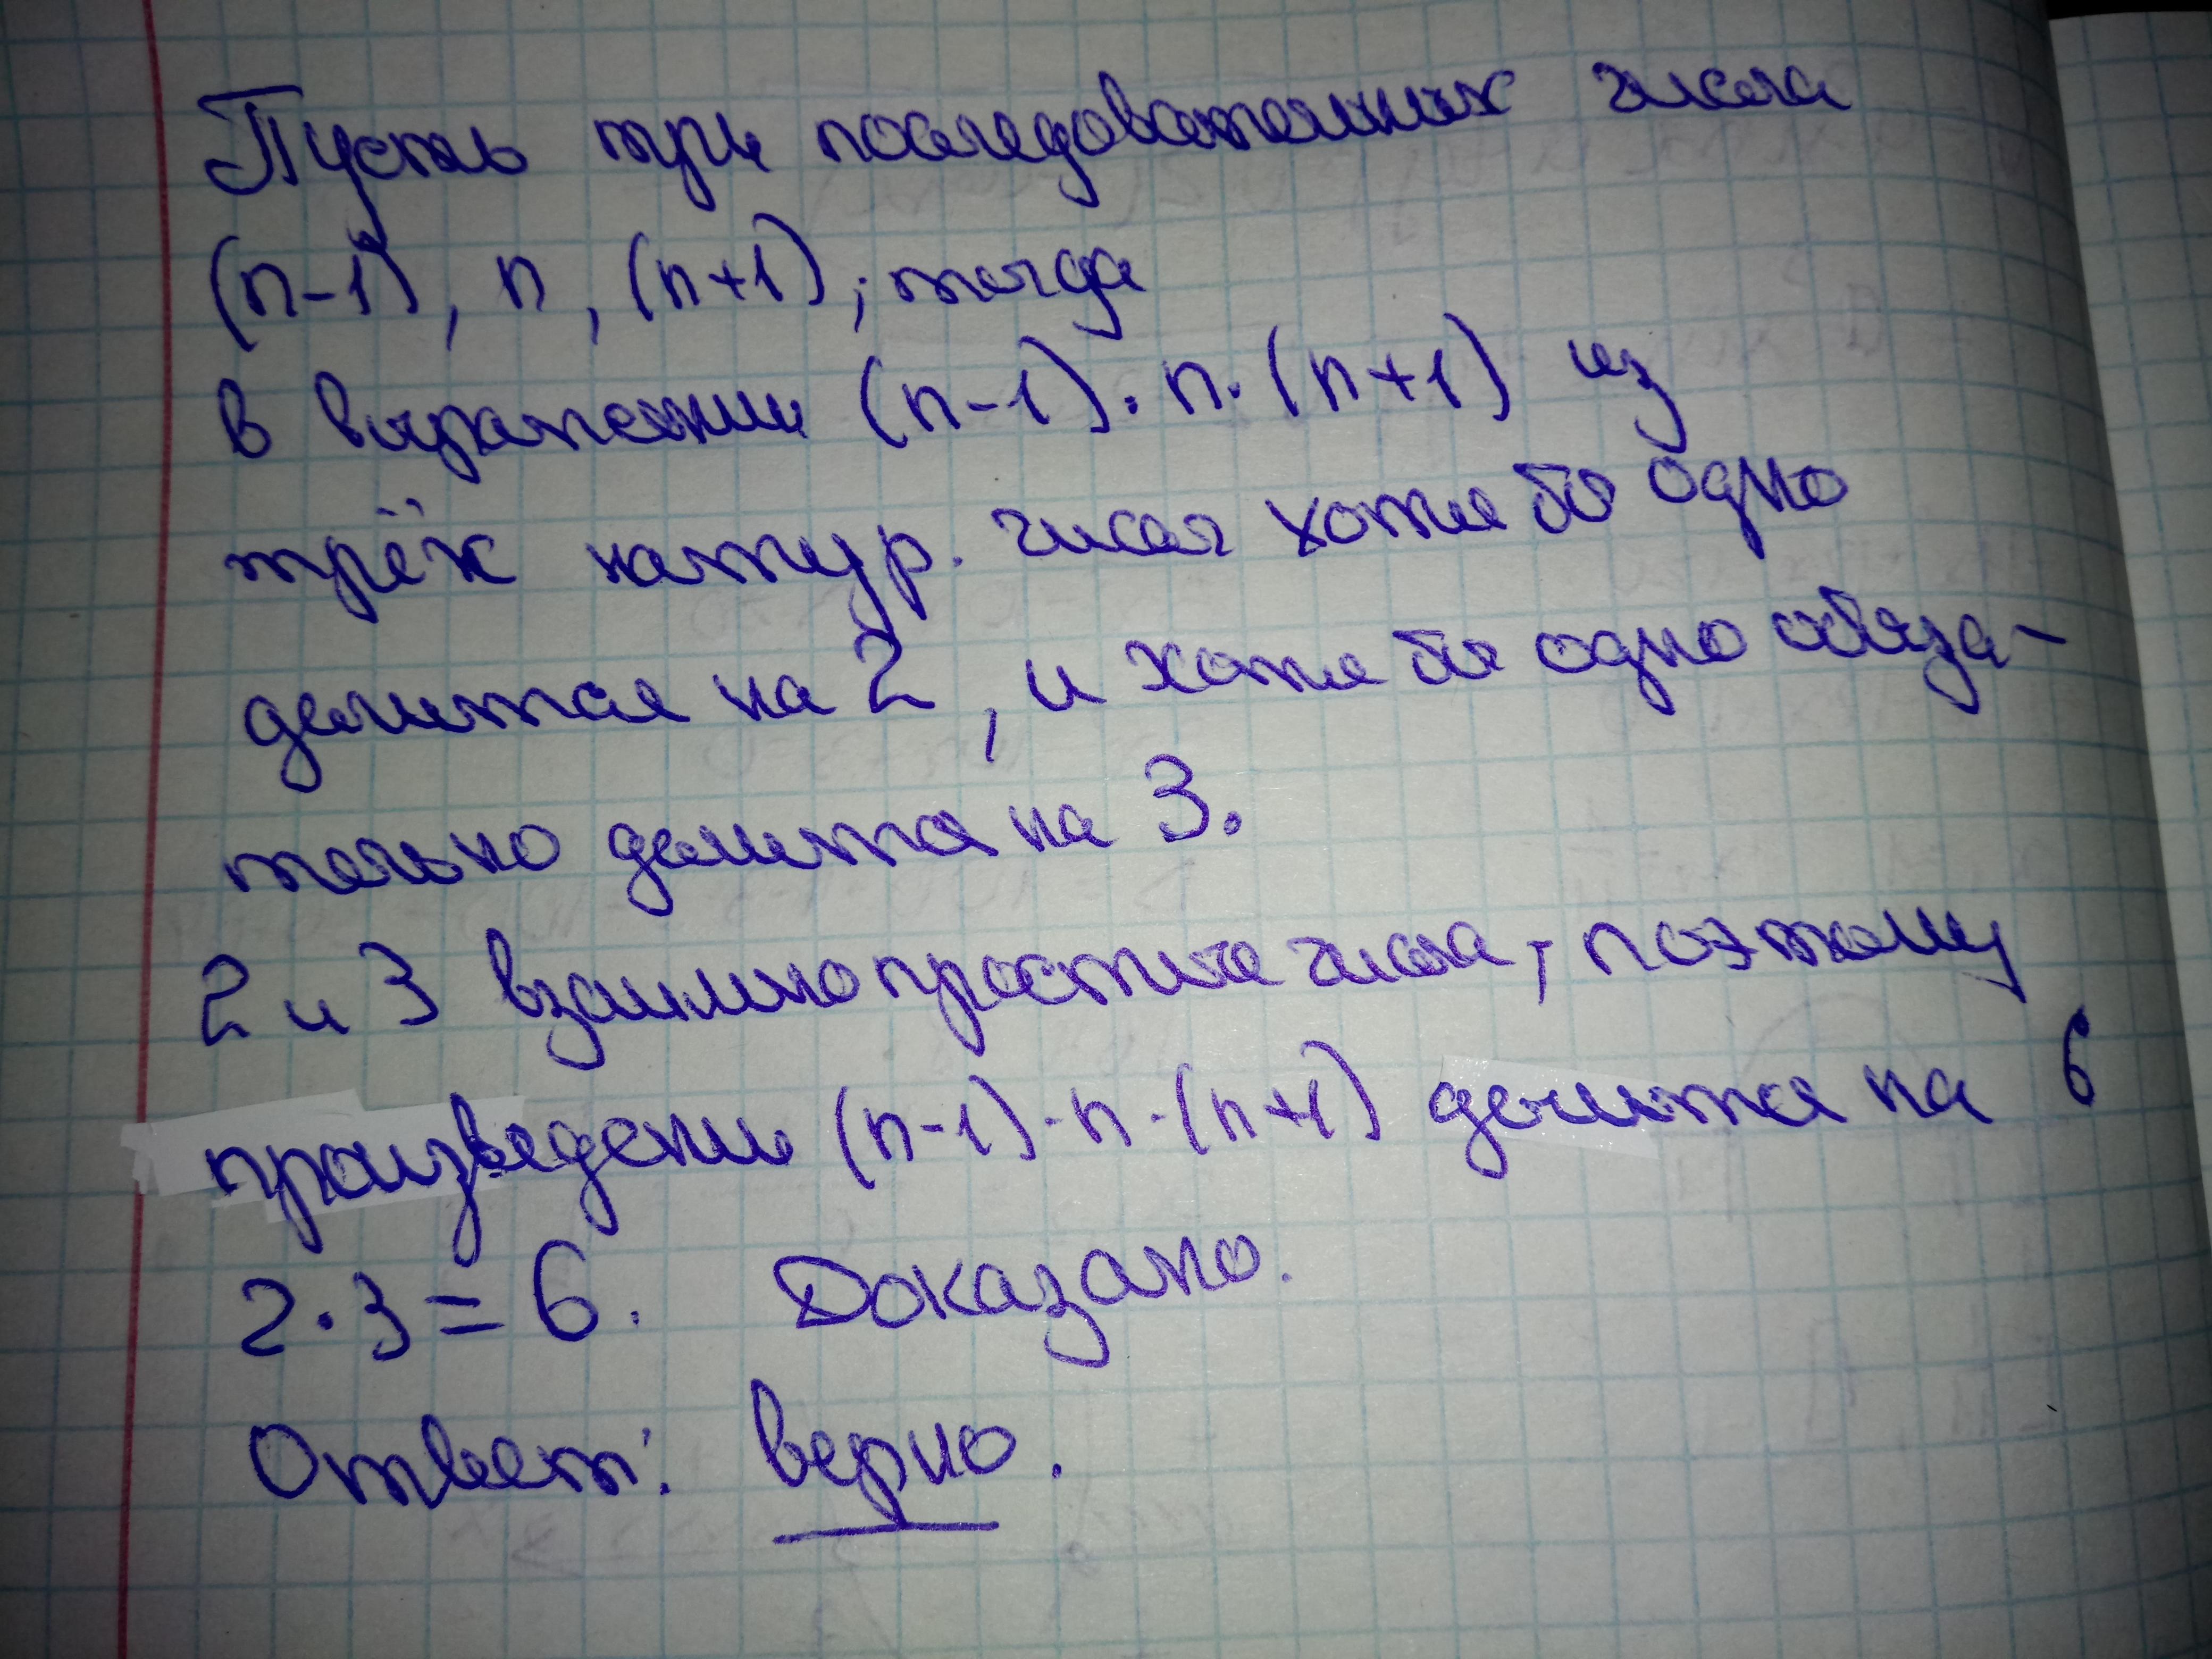 Пусть три последовательных числа
(n-1), n, (n+1), тогда
в выражении (n-1)·n·(n+1) из
трёх натур. чисел хотя бы одно
делится на 2, и хотя бы одно обяза-
тельно делится на 3.
2 и 3 взаимно простые числа, поэтому
произведени (n-1)·n·(n+1) делится на 6
2·3=6. Доказано.
Ответ: верно.